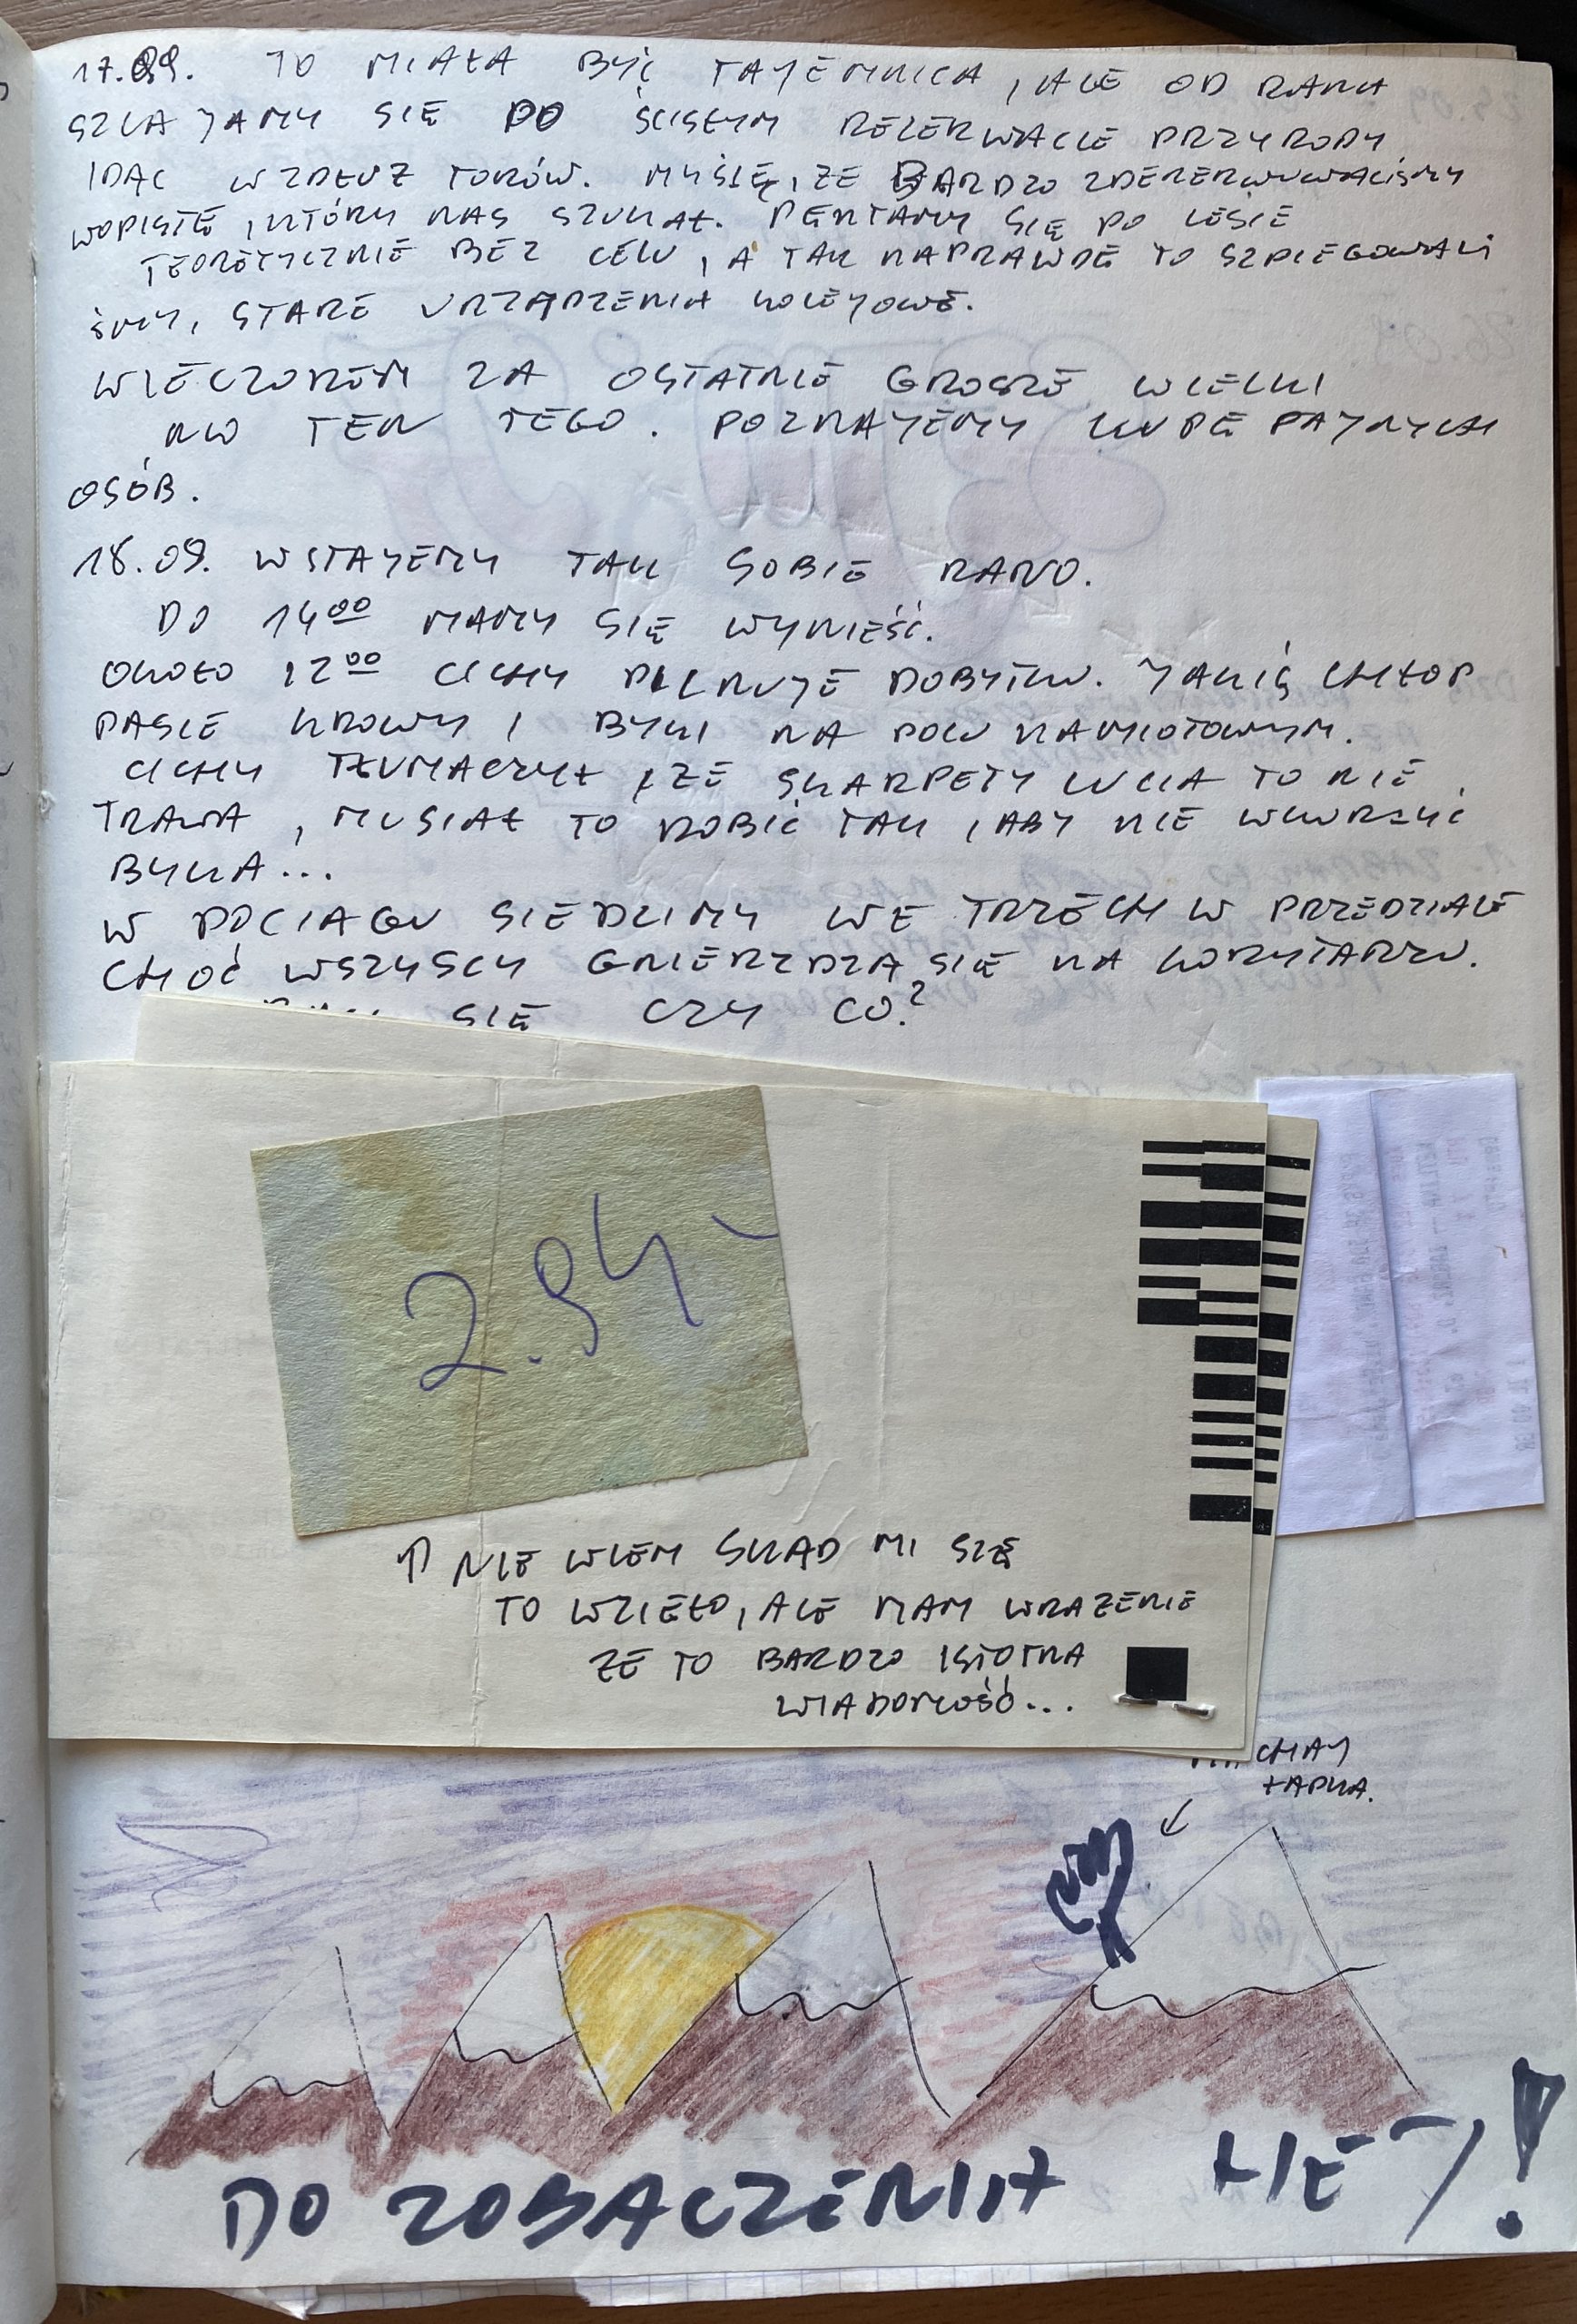 17.09. TO MIAŁA BYĆ TAJEMNICA, ALE OD RANA
SZLAJAMY SIĘ PO ŚCISŁYM REZERWACIE PRZYRODY
IDĄC WZDŁUŻ TORÓW. MYŚLĘ, ŻE BARDZO ZDENERWOWALIŚMY
WOPISTĘ, KTÓRY NAS SZUKAŁ. PENTAMY SIĘ PO LESIE
TEORETYCZNIE BEZ CELU, A TAK NAPRAWDĘ TO SZPIEGOWALI
ŚMY, STARE URZĄDZENIA KOLEJOWE.
WIECZOREM ZA OSTATNIE GROSZE WIELKI
NO TEN TEGO. POZNAJEMY KUPĘ FAJNYCH
OSÓB.
18.09. WSTAJEMY TAK SOBIE RANO.
DO 14 00 MAMY SIĘ WYNIEŚĆ.
OKOŁO 12 00 CICHY PILNUJE DOBYTKU. JAKIŚ CHŁOP
PASIE KROWY I BYKI NA POLU NAMIOTOWYM.
CICHY TŁUMACZYŁ, ŻE SKARPETY LUCIA TO NIE
TRAWA, MUSIAŁ TO ROBIĆ TAK, ABY NIE WKURZYĆ
BYKA...
W POCIĄGU SIEDZIMY WE TRZECH W PRZEDZIALE
CHOĆ WSZYSCY GNIEŻDŻĄ SIĘ NA KORYTARZU.
SIĘ CZY CO?
2.94,-
↑ NIE WIEM SKĄD MI SIĘ
TO WZIĘŁO, ALE MAM WRAŻENIE
ŻE TO BARDZO ISTOTNA
WIADOMOŚĆ...
ŁAPKA.
↙
DO ZOBACZENIA HEJ!